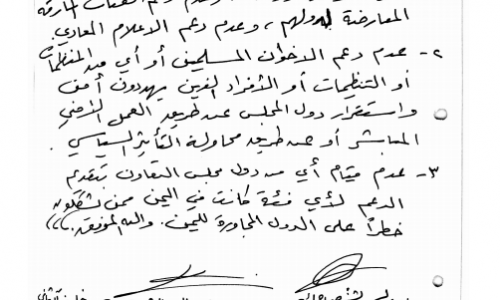 المعارضة لدولهم ، وعدم دعم الاعلام المعادي.
٢- عدم دعم الاخوان المسلمين أو أي من المنظمات
أو التنظيمات أو الأفراد الذين يهددون أمن
واستقرار دول المجلس عن طريق العمل الأمني
المباشر أو عن طريق محاولة التأثير السياسي.
٣- عدم قيام أي من دول مجلس التعاون بتقديم
الدعم لأي فئة كانت في اليمن ممن يشكلون
خطراً على الدول المجاورة لليمن. والله الموفق،،،